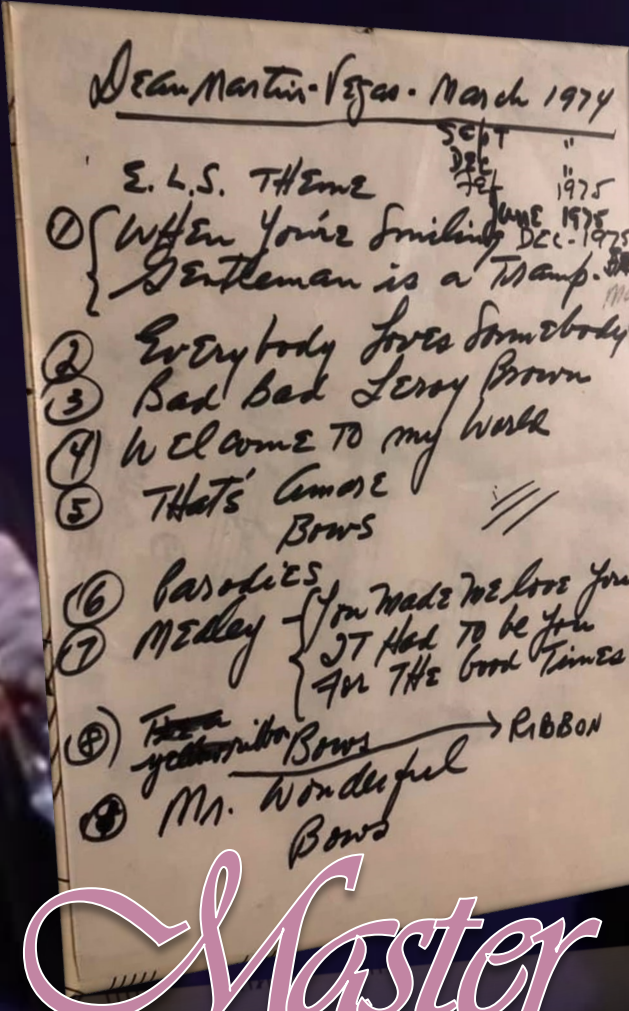 Dean Martin - Vegas - March 1974
SEPT "
DEC "
Feb 1975
E.L.S. THEME
JUNE 1975
① WHEN You're Smiling DEC - 1975
Gentleman is a Tramp.
② Everybody Loves Somebody
③ Bad Bad Leroy Brown
④ Welcome To my World
⑤ THat's Amore
Bows
⑥ Parodies
⑦ Medley - You Made Me love You
IT Had To be You
For THE Good Times
⑧ yellow ribbon Bows → RIBBON
Mr. Wonderful
Bows
Master